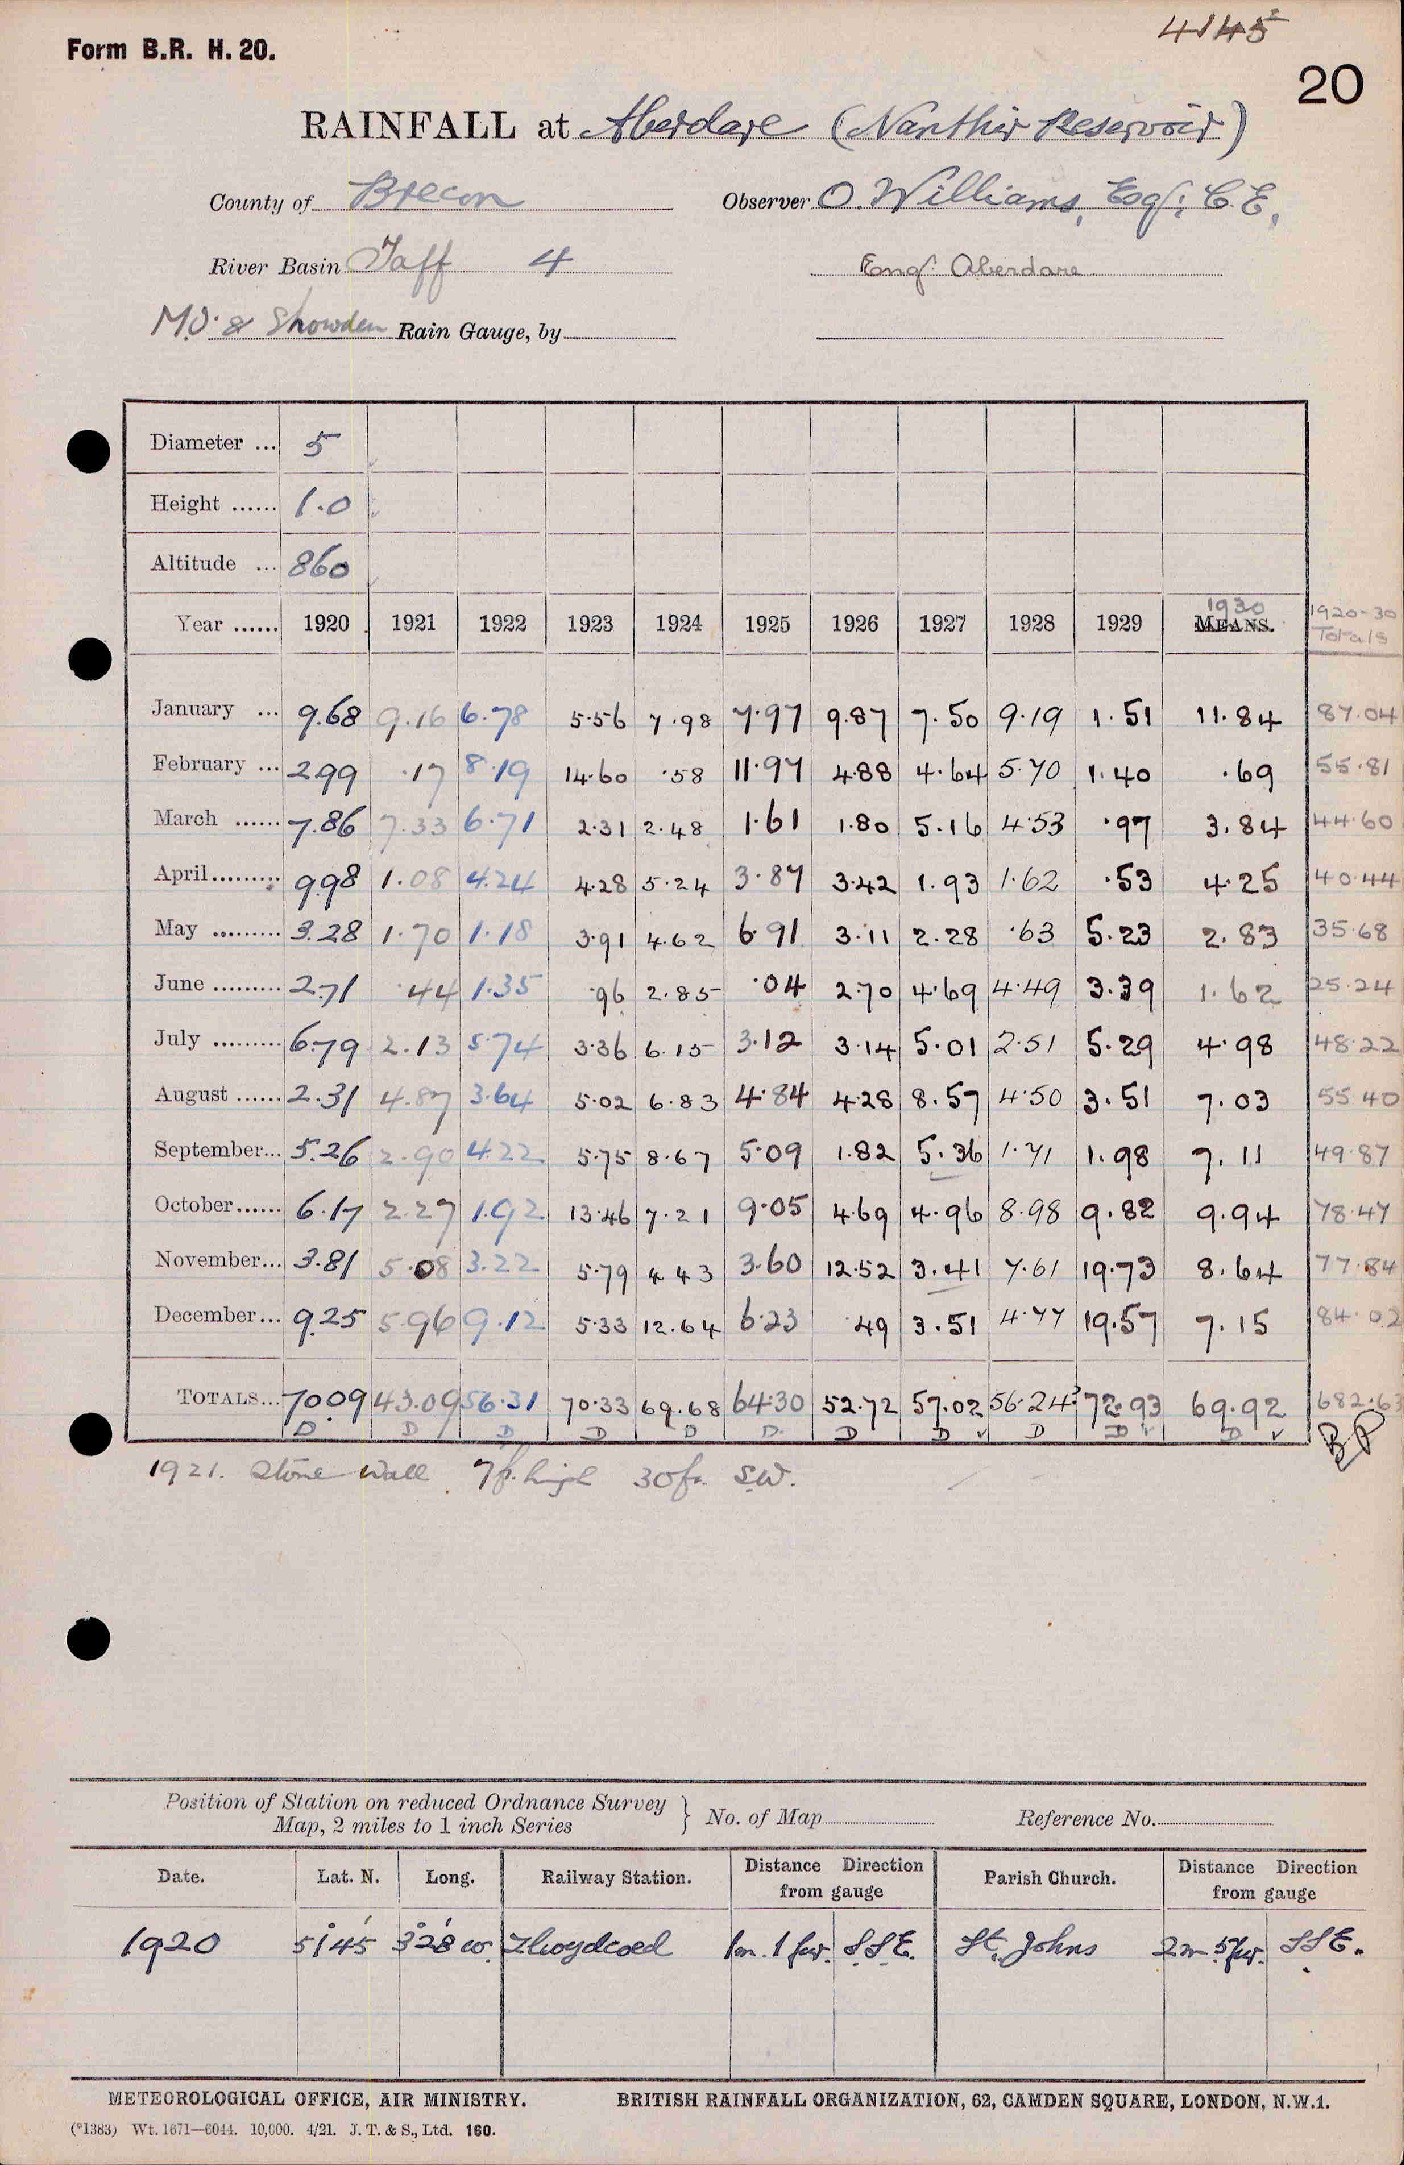 4145²
Form B.R. H. 20.
20
RAINFALL at Aberdare (Nanthir Reservoir)
County of Brecon Observer O. Williams, Esq; C.E,
River Basin Taff 4 Engr. Aberdare
M.O. & Snowden Rain Gauge, by
Diameter ... 5
Height ...... 1.0
Altitude ... 860
Year ...... 1920 1921 1922 1923 1924 1925 1926 1927 1928 1929 1930 MEANS. 1920-30 Totals
January ... 9.68 9.16 6.78 5.56 7.98 7.97 9.87 7.50 9.19 1.51 11.84 87.04
February ... 2.99 .17 8.19 14.60 .58 11.97 4.88 4.64 5.70 1.40 .69 55.81
March ...... 7.86 7.33 6.71 2.31 2.48 1.61 1.80 5.16 4.53 .97 3.84 44.60
April......... 9.98 1.08 4.24 4.28 5.24 3.87 3.42 1.93 1.62 .53 4.25 40.44
May ......... 3.28 1.70 1.18 3.91 4.62 6.91 3.11 2.28 .63 5.23 2.83 35.68
June ......... 2.71 .44 1.35 .96 2.85 .04 2.70 4.69 4.49 3.39 1.62 25.24
July ......... 6.79 2.13 5.74 3.36 6.15 3.12 3.14 5.01 2.51 5.29 4.98 48.22
August ...... 2.31 4.87 3.64 5.02 6.83 4.84 4.28 8.57 4.50 3.51 7.03 55.40
September... 5.26 2.90 4.22 5.75 8.67 5.09 1.82 5.36 1.71 1.98 7.11 49.87
October...... 6.17 2.27 1.92 13.46 7.21 9.05 4.69 4.96 8.98 9.82 9.94 78.47
November... 3.81 5.08 3.22 5.79 4.43 3.60 12.52 3.41 7.61 19.73 8.64 77.84
December... 9.25 5.96 9.12 5.33 12.64 6.23 .49 3.51 4.77 19.57 7.15 84.02
TOTALS... 70.09 43.09 56.31 70.33 69.68 64.30 52.72 57.02 56.24 72.93 69.92 682.63
D D D D D D D D ✓ D D ✓ D ✓ BP
1921. Stone wall 7ft. high 30ft. S.W.
Position of Station on reduced Ordnance Survey
Map, 2 miles to 1 inch Series } No. of Map Reference No.
Date. Lat. N. Long. Railway Station. Distance from gauge Direction Parish Church. Distance from gauge Direction
1920 51°45' 3°28' w. Llwydcoed 1m. 1 fur. S.S.E. St. Johns 2m 5fur. SSE.
METEOROLOGICAL OFFICE, AIR MINISTRY. BRITISH RAINFALL ORGANIZATION, 62, CAMDEN SQUARE, LONDON, N.W.1.
(*1383) Wt. 1671—6044. 10,000. 4/21. J. T. & S., Ltd. 160.